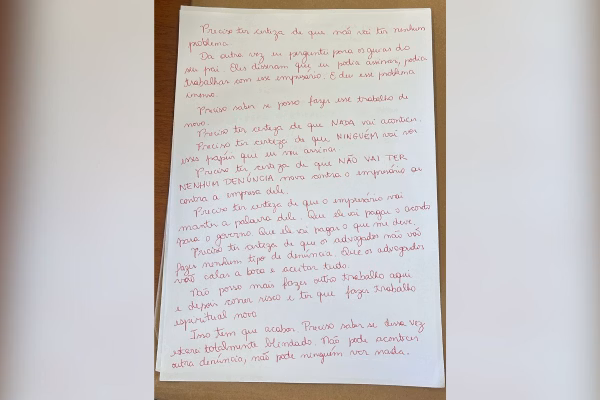 Preciso ter certeza de que não vai ter nenhum
problema.
Da outra vez eu perguntei para os guias do
seu pai. Eles disseram que eu podia assinar, podia
trabalhar com esse empresário. E deu esse problema
imenso.
Preciso saber se posso fazer esse trabalho de
novo.
Preciso ter certeza de que NADA vai acontecer.
Preciso ter certeza de que NINGUÉM vai ver
esses papéis que eu vou assinar.
Preciso ter certeza de que NÃO VAI TER
NENHUM DENÚNCIA nova contra o empresário ou
contra a empresa dele.
Preciso ter certeza de que o empresário vai
manter a palavra dele. Que ele vai pagar o acordo
para o governo. Que ele vai pagar o que me deve.
Preciso ter certeza de que os advogados não vão
fazer nenhum tipo de denúncia. Que os advogados
vão calar a boca e aceitar tudo.
Não posso mais fazer outro trabalho aqui
e depois correr risco e ter que fazer trabalho
espiritual novo.
Isso tem que acabar. Preciso saber se dessa vez
estará totalmente blindado. Não pode acontecer
outra denúncia, não pode ninguém ver nada.